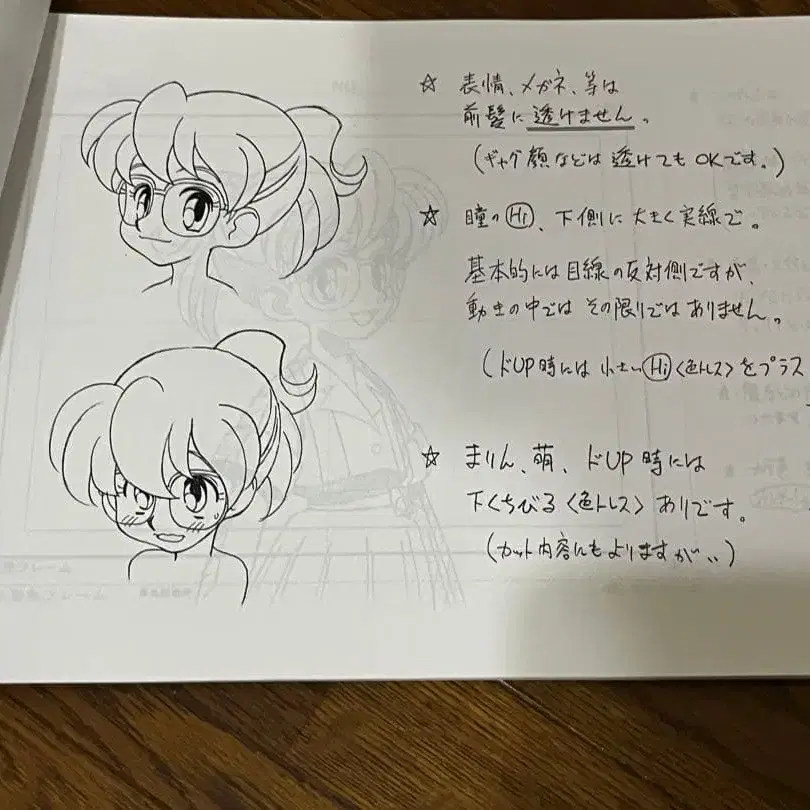 ☆ 表情、メガネ、等は
前髪に透けません。
(ギャグ顔などは透けてもOKです。)
☆ 瞳のHi、下側に大きく実線で。
基本的には目線の反対側ですが、
動きの中ではその限りではありません。
(ドUP時には小さいHi〈色トレス〉をプラス
☆ まりん、萌、ドUP時には
下くちびる〈色トレス〉ありです。
(カット内容にもよりますが、、)